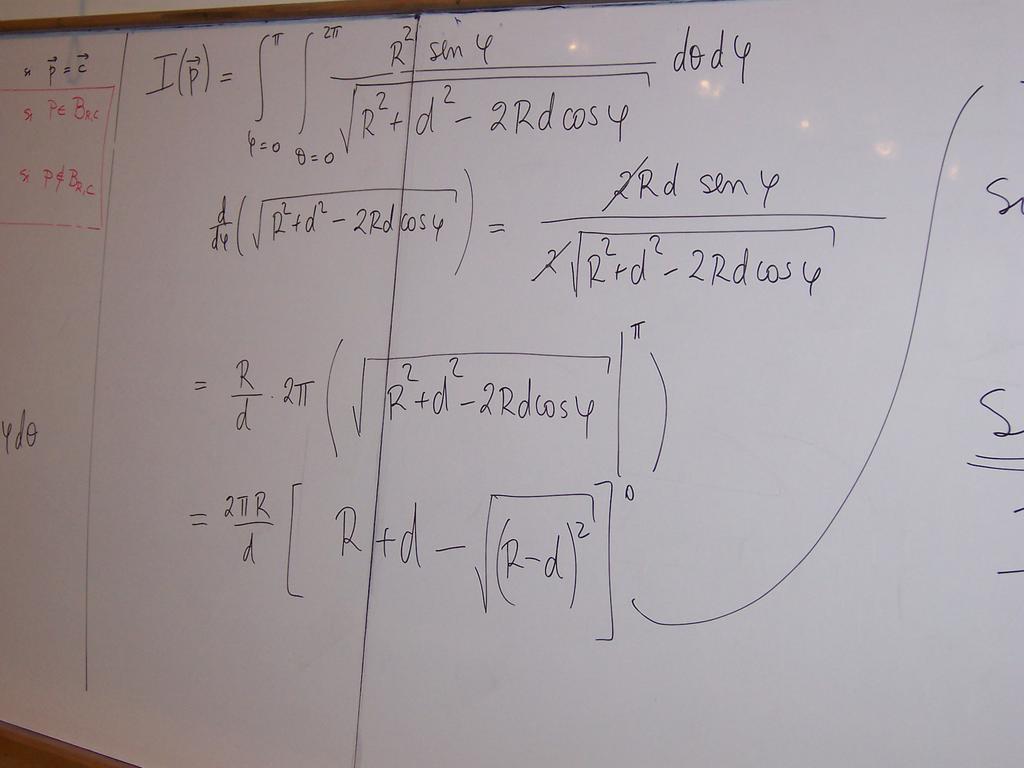 si p⃗ = c⃗
si p ∈ B_{R,C}
si p ∉ B_{R,C}
φ dθ
I(p⃗) = ∫_{φ=0}^{π} ∫_{θ=0}^{2π} R² sen φ / √(R² + d² − 2Rd cos φ) dθ dφ
d/dφ (√(R² + d² − 2Rd cos φ)) = 2Rd sen φ / 2√(R² + d² − 2Rd cos φ)
= R/d · 2π (√(R² + d² − 2Rd cos φ) |_0^π)
= 2πR/d [R + d − √((R − d)²)]